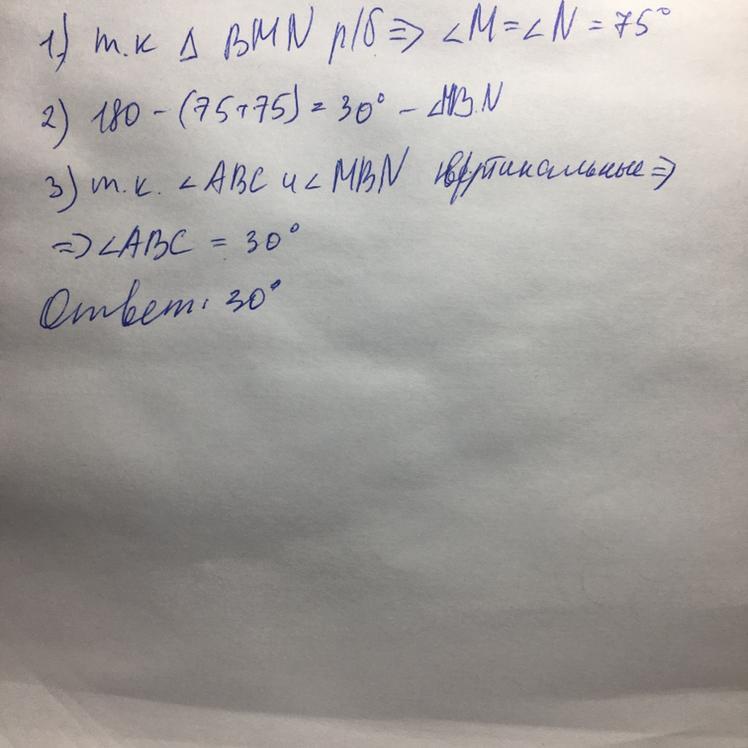 1) т.к Δ BMN р/б => ∠M = ∠N = 75°
2) 180 - (75+75) = 30° - ∠MBN
3) т.к. ∠ABC и ∠MBN вертикальные =>
=> ∠ABC = 30°
Ответ: 30°